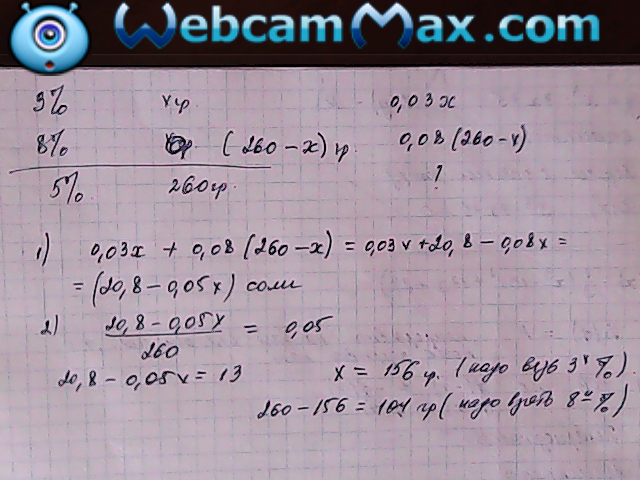 WebcamMax.com
3% x гр. 0,03x
8% (260-x) гр 0,08(260-x)
5% 260гр. ?
1) 0,03x + 0,08(260-x) = 0,03x+20,8-0,08x =
= (20,8-0,05x) соли
2) 20,8-0,05x / 260 = 0,05
20,8-0,05x = 13 x = 156 гр. (надо взять 3х %)
260-156 = 104 гр (надо взять 8и %)